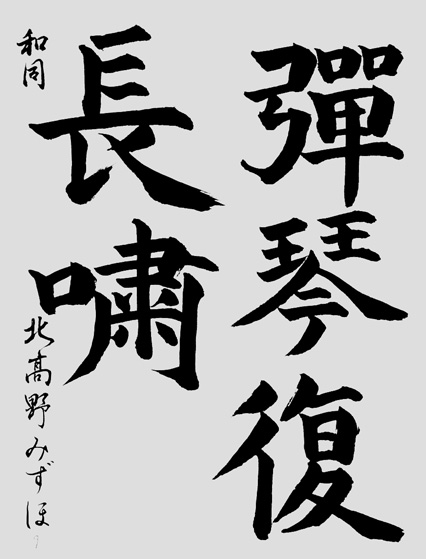 彈琴復
長嘯
和同
北髙野みずほ